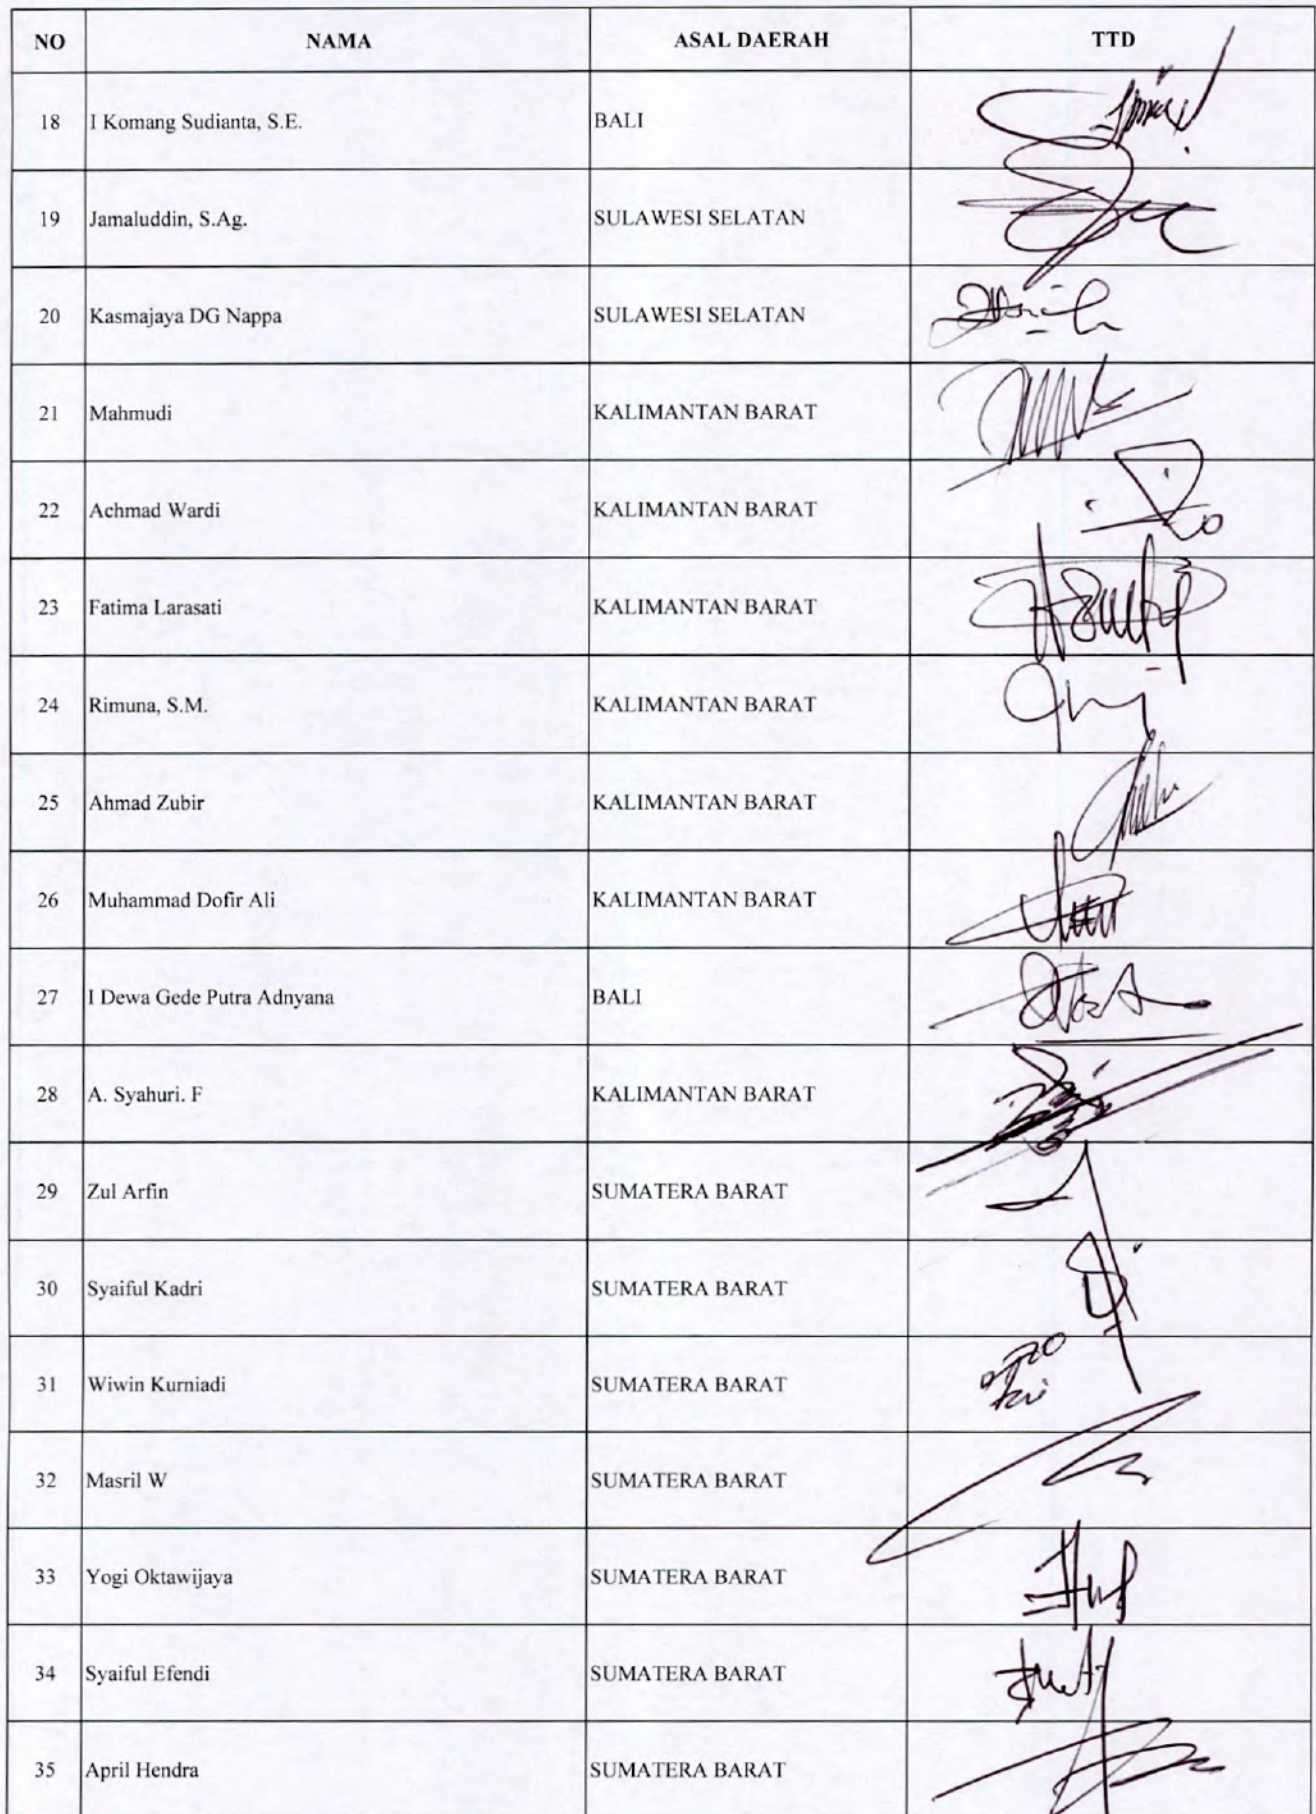 NO NAMA ASAL DAERAH TTD
18 I Komang Sudianta, S.E. BALI
19 Jamaluddin, S.Ag. SULAWESI SELATAN
20 Kasmajaya DG Nappa SULAWESI SELATAN
21 Mahmudi KALIMANTAN BARAT
22 Achmad Wardi KALIMANTAN BARAT
23 Fatima Larasati KALIMANTAN BARAT
24 Rimuna, S.M. KALIMANTAN BARAT
25 Ahmad Zubir KALIMANTAN BARAT
26 Muhammad Dofir Ali KALIMANTAN BARAT
27 I Dewa Gede Putra Adnyana BALI
28 A. Syahuri. F KALIMANTAN BARAT
29 Zul Arfin SUMATERA BARAT
30 Syaiful Kadri SUMATERA BARAT
31 Wiwin Kurniadi SUMATERA BARAT
32 Masril W SUMATERA BARAT
33 Yogi Oktawijaya SUMATERA BARAT
34 Syaiful Efendi SUMATERA BARAT
35 April Hendra SUMATERA BARAT